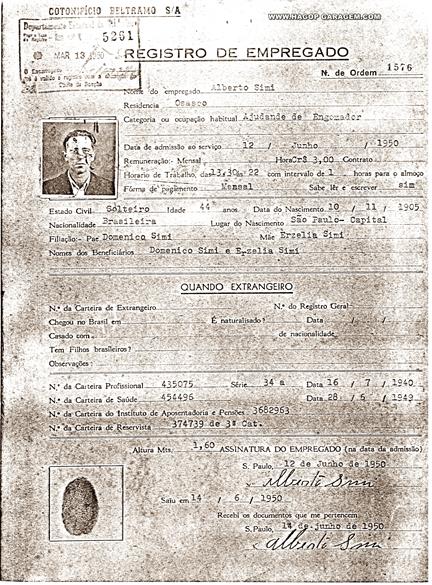 COTONIFÍCIO BELTRAMO S/A
WWW.HAGOP GARAGEM.COM
Departamento
5261
MAR 13 1950
REGISTRO DE EMPREGADO
N. de Ordem 1576
Nome do empregado Alberto Simi
Residencia Osasco
Categoria ou ocupação habitual Ajudande de Engomador
Data de admissão ao serviço 12 / Junho / 1950
Remuneração: Mensal Hora Cr$ 3,00 Contrato
Horario de Trabalho, das 13,30 às 22 com intervalo de 1 horas para o almoço
Fórma de pagamento Mensal Sabe, lêr e escrever sim
Estado Civil Solteiro Idade 44 anos. Data do Nascimento 10 / 11 / 1905
Nacionalidade Brasileira Lugar do Nascimento São Paulo- Capital
Filiação:- Pae Domenico Simi Mãe Erzelia Simi
Nomes dos Beneficiários Domenico Simi e Erzelia Simi
QUANDO EXTRANGEIRO
N.º da Carteira de Extrangeiro N.º do Registro Geral
Chegou no Brasil em É naturalisado? Data / /
Casado com de nacionalidade
Tem Filhos brasileiros?
Observações:
N.º da Carteira Profissional 435075 Série 34 a Data 16 / 7 / 1940
N.º da Carteira de Saúde 454496 Data 28 / 6 / 1949
N.º da Carteira do Instituto de Aposentadoria e Pensões 3682963
N.º da Carteira de Reservista 374739 de 3ª Cat.
Altura Mts. 1,60 ASSINATURA DO EMPREGADO (na data da admissão)
S. Paulo, 12 de Junho de 1950
Alberto Simi
Saiu em 14 / 6 / 1950
Recebi os documentos que me pertencem
S. Paulo, 14 de junho de 1950
Alberto Simi